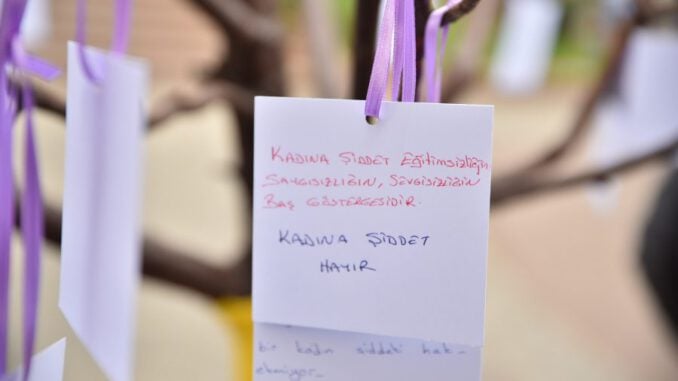 KADINA ŞİDDET EĞİTİMSİZLİĞİN
SAYGISIZLIĞIN, SEVGİSİZLİĞİN
BAŞ GÖSTERGESİDİR.
KADINA ŞİDDET
HAYIR
bir kadın şiddeti hak
etmiyor